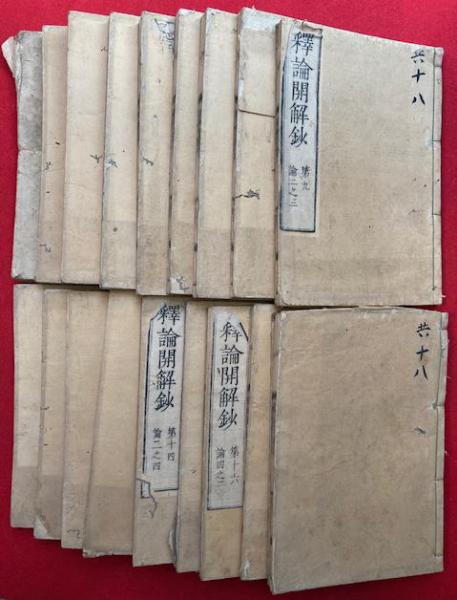 釋論開解鈔
第九
論二之三
共十八
釋論開解鈔
第十四
論二之四
釋論開解鈔
第十六
論四之二
共十八